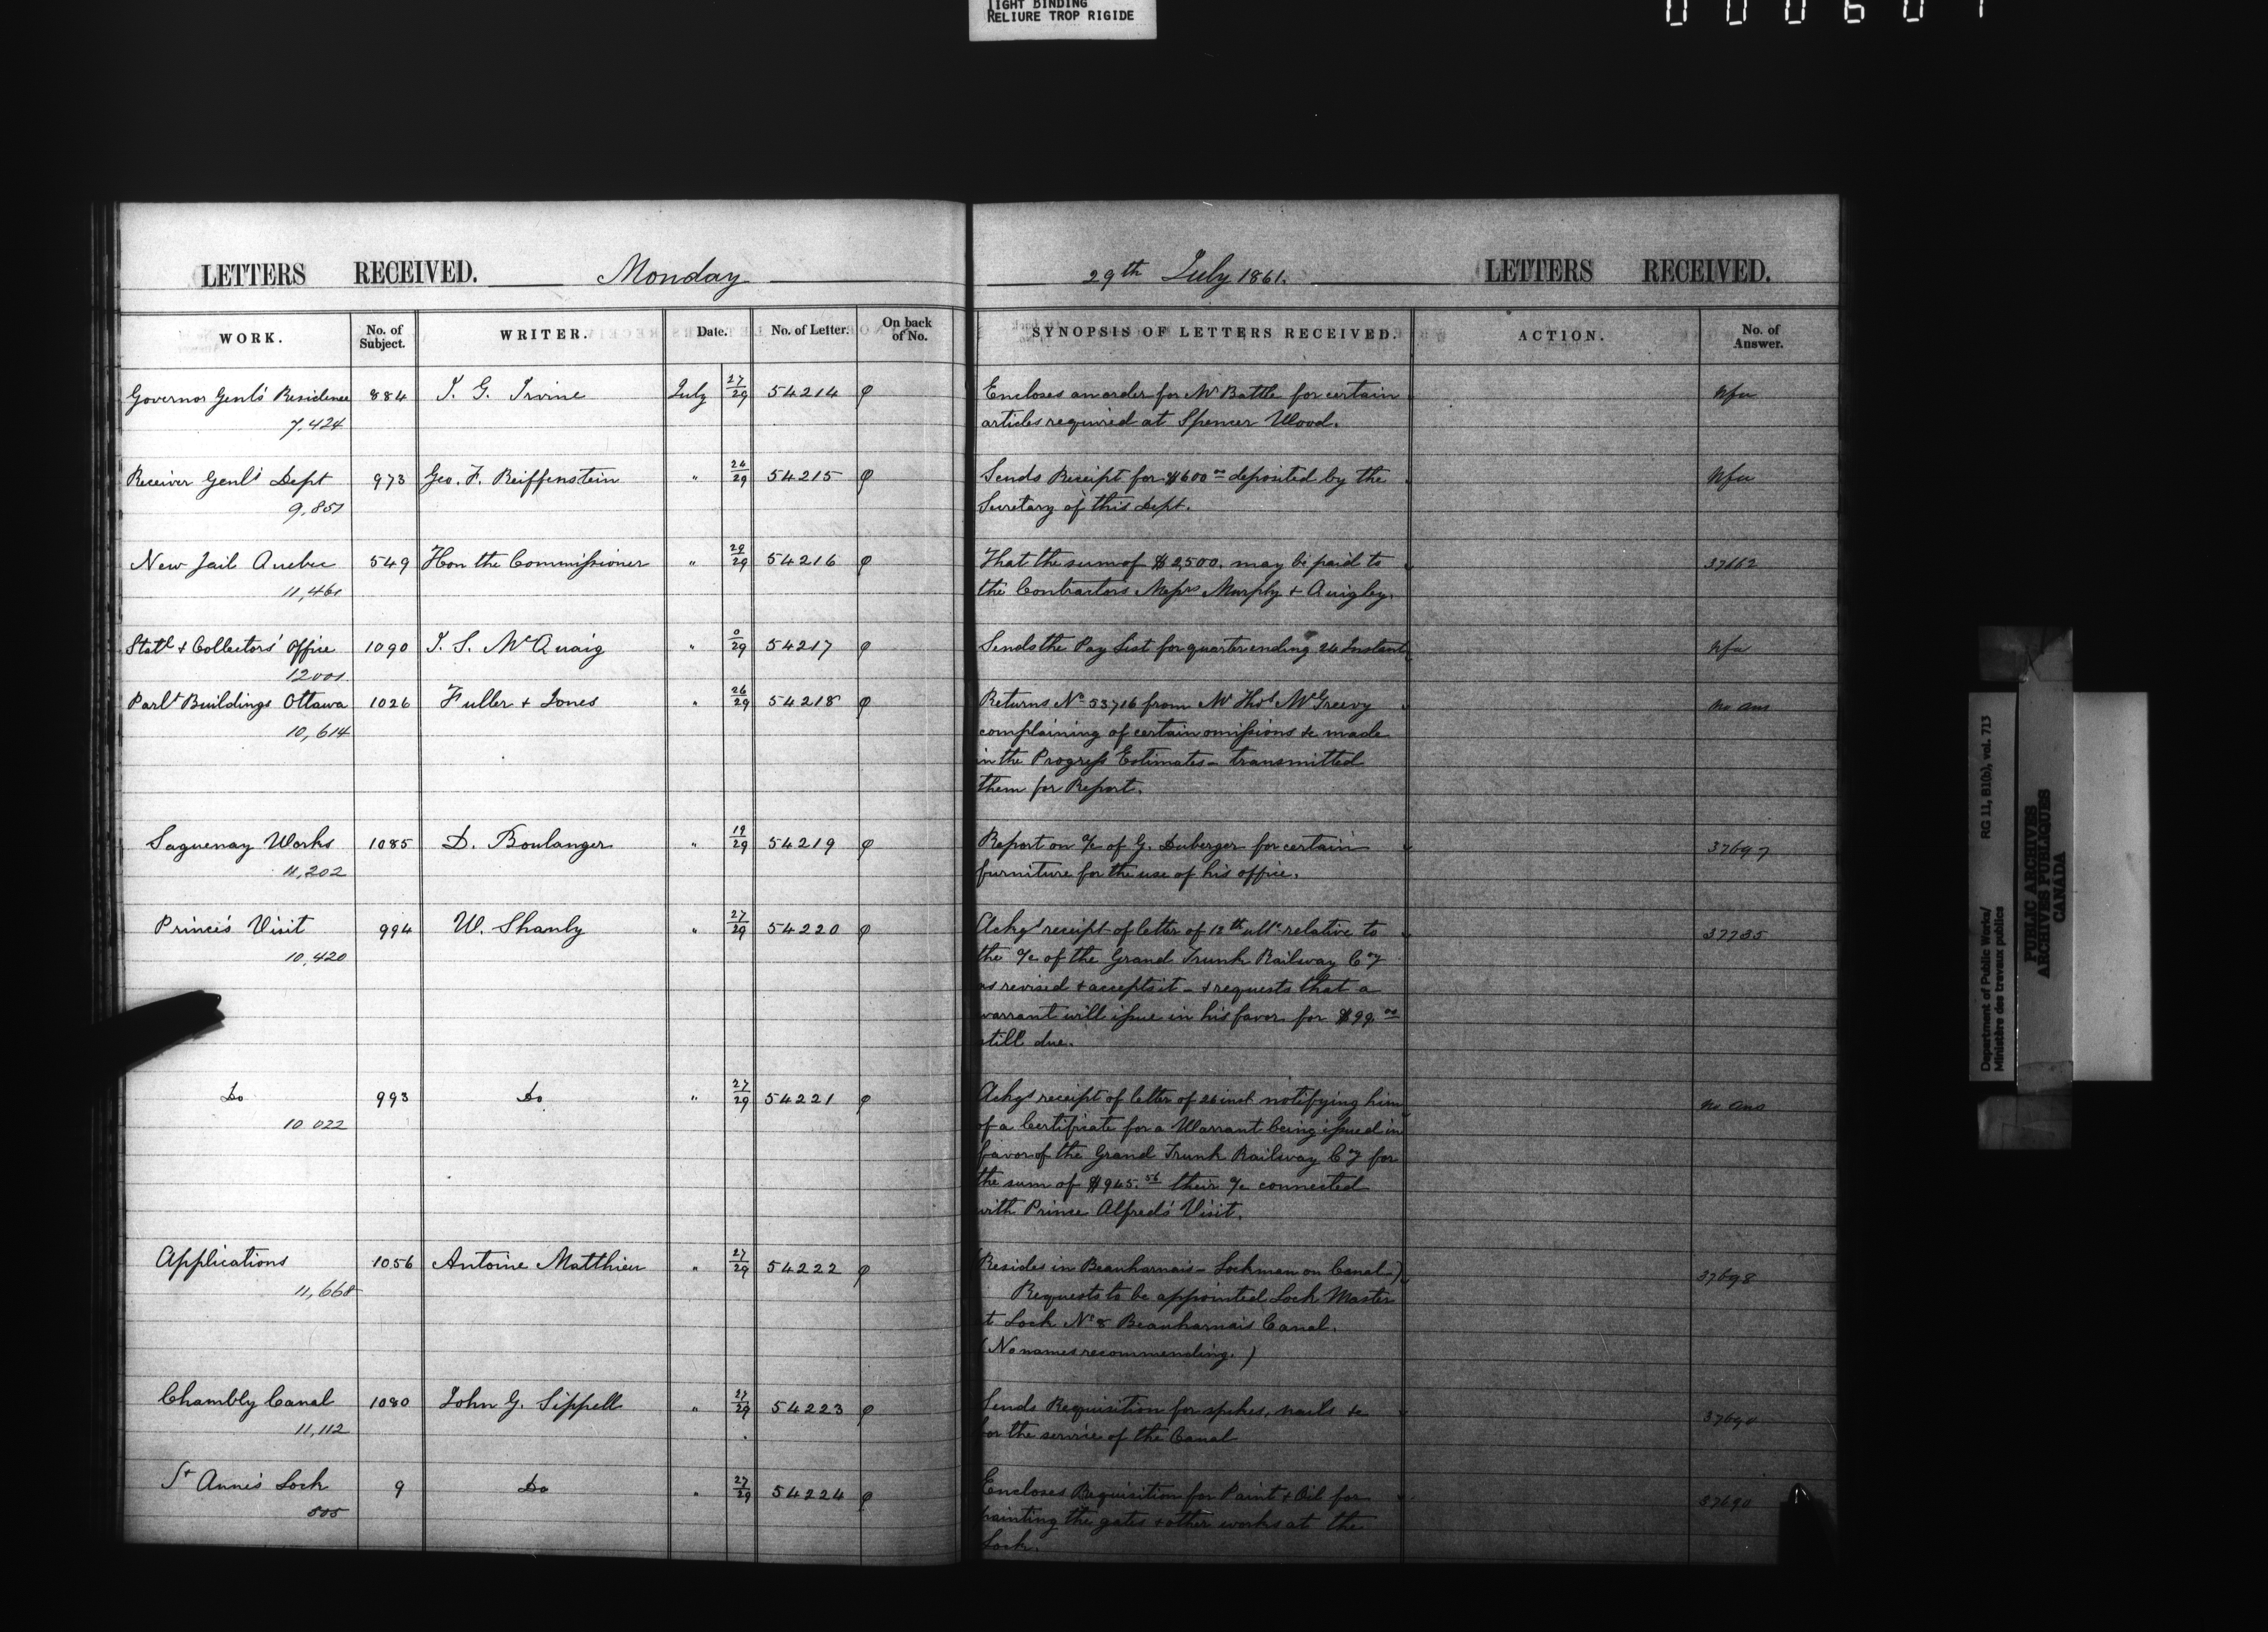 TIGHT BINDING
RELIURE TROP RIGIDE
LETTERS RECEIVED. Monday
29th July 1861. LETTERS RECEIVED.
WORK. No. of Subject. WRITER. Date. No. of Letter. On back of No. SYNOPSIS OF LETTERS RECEIVED. ACTION. No. of Answer.
Governor Genl's Residence 884 I. G. Irvine July 27/29 54214 φ Encloses an order for Mr Battle for certain
7,424 articles required at Spencer Wood.
Receiver Genl's Dept 973 Geo. F. Reiffenstein " 24/29 54215 φ Sends Receipt for $600 00 deposited by the
9,851 Secretary of this Dept.
New Jail Quebec 549 Hon the Commissioner " 29/29 54216 φ That the sum of $2,500. may be paid to 37662
11,461 the Contractors Messrs Murphy & Quigley.
1090 " 0/29 54217 φ Sends the Pay List for quarter ending 24 Instant
12001
Parlt Buildings Ottawa 1026 Fuller + Jones " 26/29 54218 φ Returns No 53716 from Mr Thos McGreevy no ans
10,614 complaining of certain omissions &c made
in the Progress Estimates - transmitted
them for Report.
Saguenay Works 1085 D. Boulanger " 19/29 54219 φ Report on a/c of G. Duberger for certain 37697
11,202 furniture for the use of his office.
Prince's Visit 994 W. Shanly " 27/29 54220 φ Ackgs receipt of letter of 18th ulto relative to 37735
10,420 the a/c of the Grand Trunk Railway Coy
as revised + accepts it - + requests that a
warrant will issue in his favor for $99 00
still due.
Do 993 Do " 27/29 54221 φ Ackgs receipt of letter of 26 inst notifying him no ans
10 022 of a Certificate for a Warrant being issued in
favor of the Grand Trunk Railway Coy for
the sum of $945.56 their a/c connected
with Prince Alfred's Visit.
Applications 1056 Antoine Matthieu " 27/29 54222 φ (Resides in Beauharnais - Lockman on Canal) 37698
11,668 Requests to be appointed Lock Master
at Lock No 8 Beauharnais Canal.
(No names recommending.)
Chambly Canal 1080 John G. Sippell " 27/29 54223 φ Sends Requisition for spikes, nails &c 37690
11,112 for the service of the Canal
St Anne's Lock 9 Do " 27/29 54224 φ Encloses Requisition for Paint & Oil for 37690
505 painting the gates + other works at the
Lock.
Department of Public Works/
Ministère des travaux publics
RG 11, B1(b), vol. 713
PUBLIC ARCHIVES
ARCHIVES PUBLIQUES
CANADA